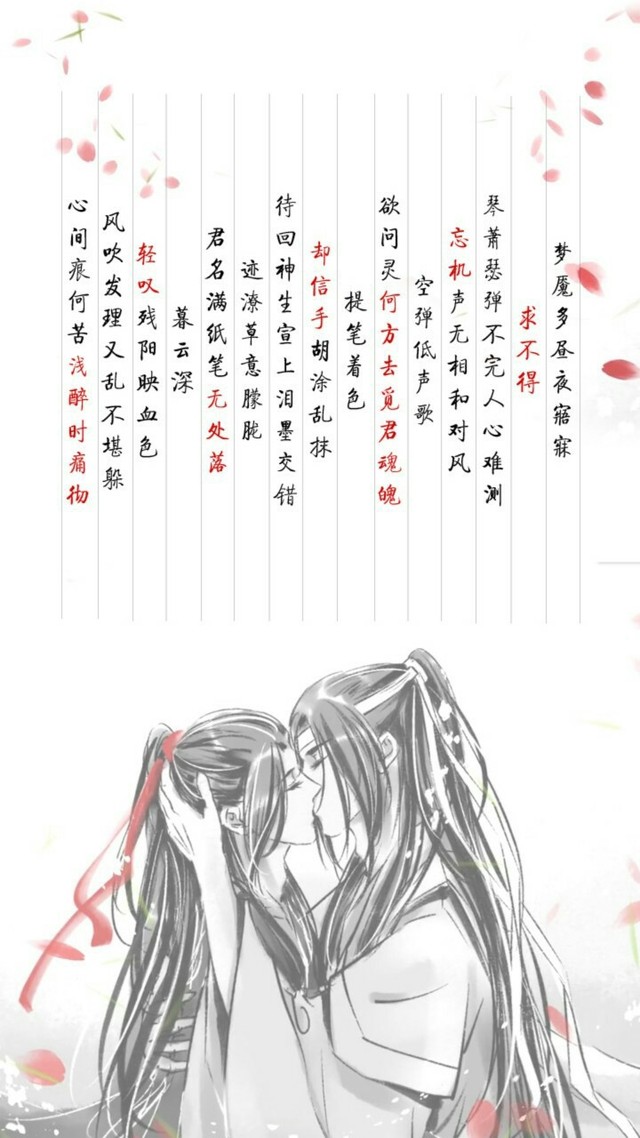 梦魇多昼夜寤寐
求不得
琴萧瑟弹不完人心难测
忘机声无相和对风
空弹低声歌
欲问灵何方去觅君魂魄
提笔着色
却信手胡涂乱抹
待回神生宣上泪墨交错
迹潦草意朦胧
君名满纸笔无处落
暮云深
轻叹残阳映血色
风吹发理又乱不堪躲
心间痕何苦浅醉时痛彻